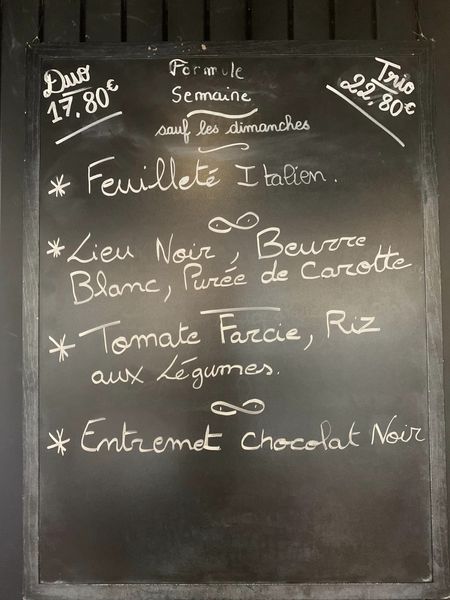 Duo
17,80€
Formule
Semaine
sauf les dimanches
Trio
22,80€
* Feuilleté Italien.
* Lieu Noir, Beurre
Blanc, Purée de Carotte
* Tomate Farcie, Riz
aux Légumes.
* Entremet Chocolat Noir